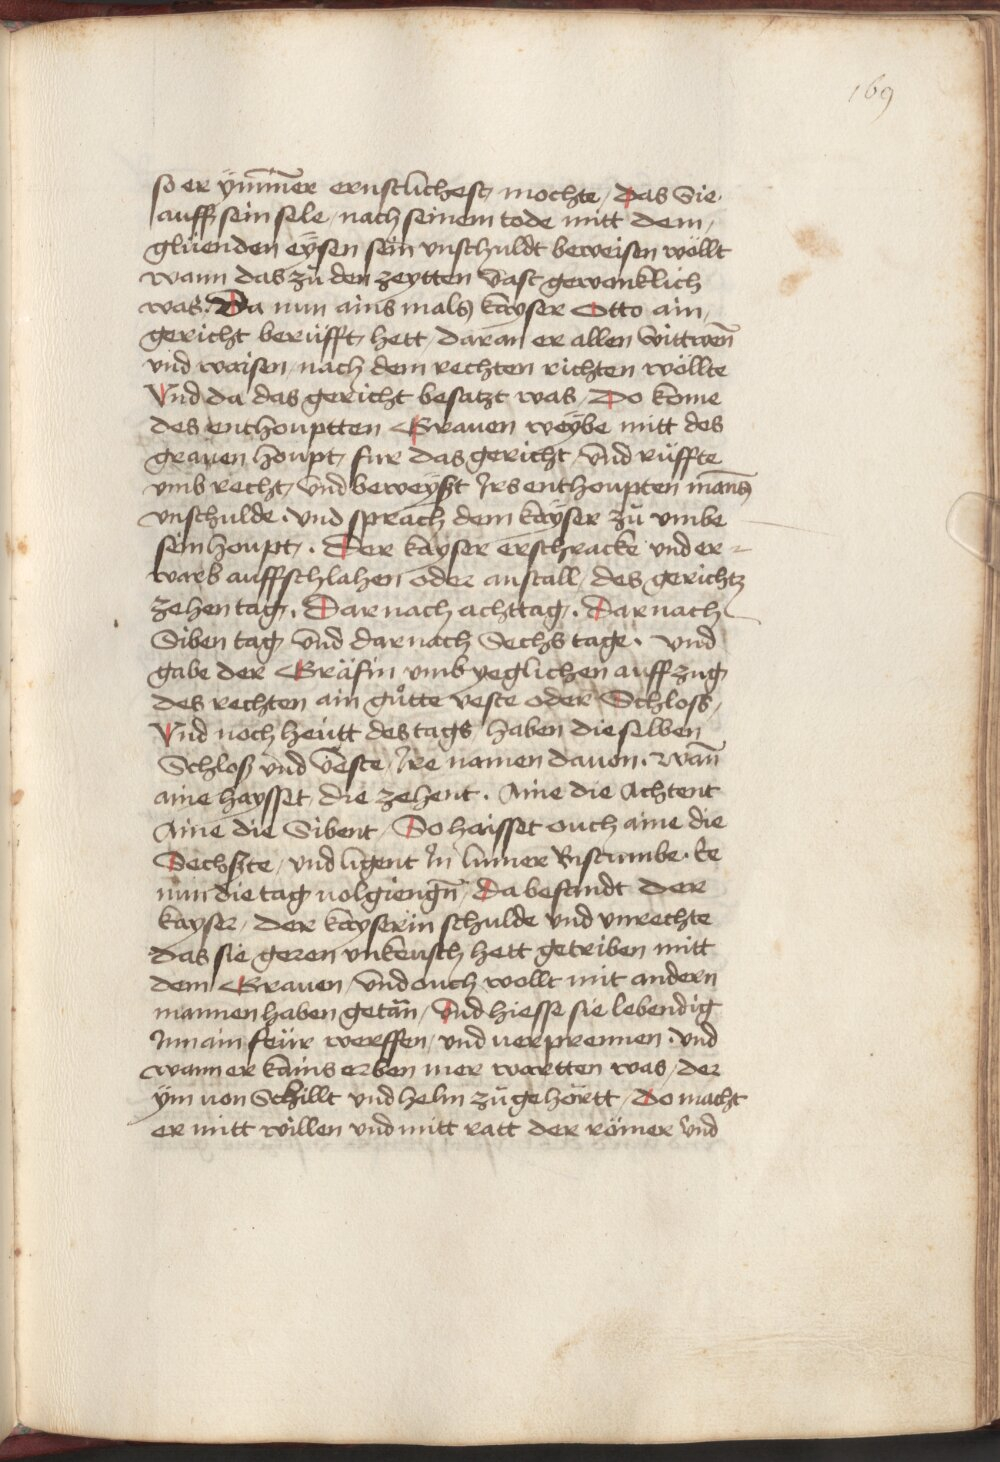 169
so er ÿm̅mer ernstlichest mochte / Das Sie
auff sein sele / nach seinem tode mitt dem /
glüenden eÿsen sein vnschuldt beweisen wöllt
wann das zů den zeytten vast gewonklich
was. Da nun ains mals kayser Otto ain /
gericht berüfft hett / daran er allen wittwen̅
vnd waisen / nach dem rechten richten wöllte
Vnd da das gericht besatzt was / Do kome
des enthouptten Grauen weÿbe mitt des
grauen houpt / fur das gericht / vnd rüffte
vmb recht / vnd beweÿßt Irs enthoupten man̅s
vnschulde . vnd sprach dem kayser zů vmbe
sein houpt . Der kayser erschracke vnd er-
warb auffschlahen oder anstall / des gerichtz
zehen tag . Dar nach acht tag . Dar nach
Siben tag vnd dar nach Sechs tage . vnd
gabe der Gräfin vmb yeglichen auffzug
des rechten ain gůtte veste oder Schloss /
Vnd noch heutt des tags haben die selben
Schloß vnd veste / Ire namen dauon . wan̅
aine haysset / die zehent . Aine die Achtent
Aine die Sibent / So haisset ouch aine die
Sechßte / vnd ligent In
nun die tag uolgiengn̅ / Da befandt der
kayser / der kayserin schulde vnd vnrechte
das sie geren vnkeusch hett getriben mitt
dem Grauen / vnd ouch wollt mit andern
mannen haben getän / Vnd hiesse sie lebendig
Inn ain feür werffen / vnd uerprennen . vnd
wann er kains erben mer wartten was / der
ym uon Schillt vnd helm zůgehörtt / Do macht
er mitt willen vnd mitt ratt der römer vnd